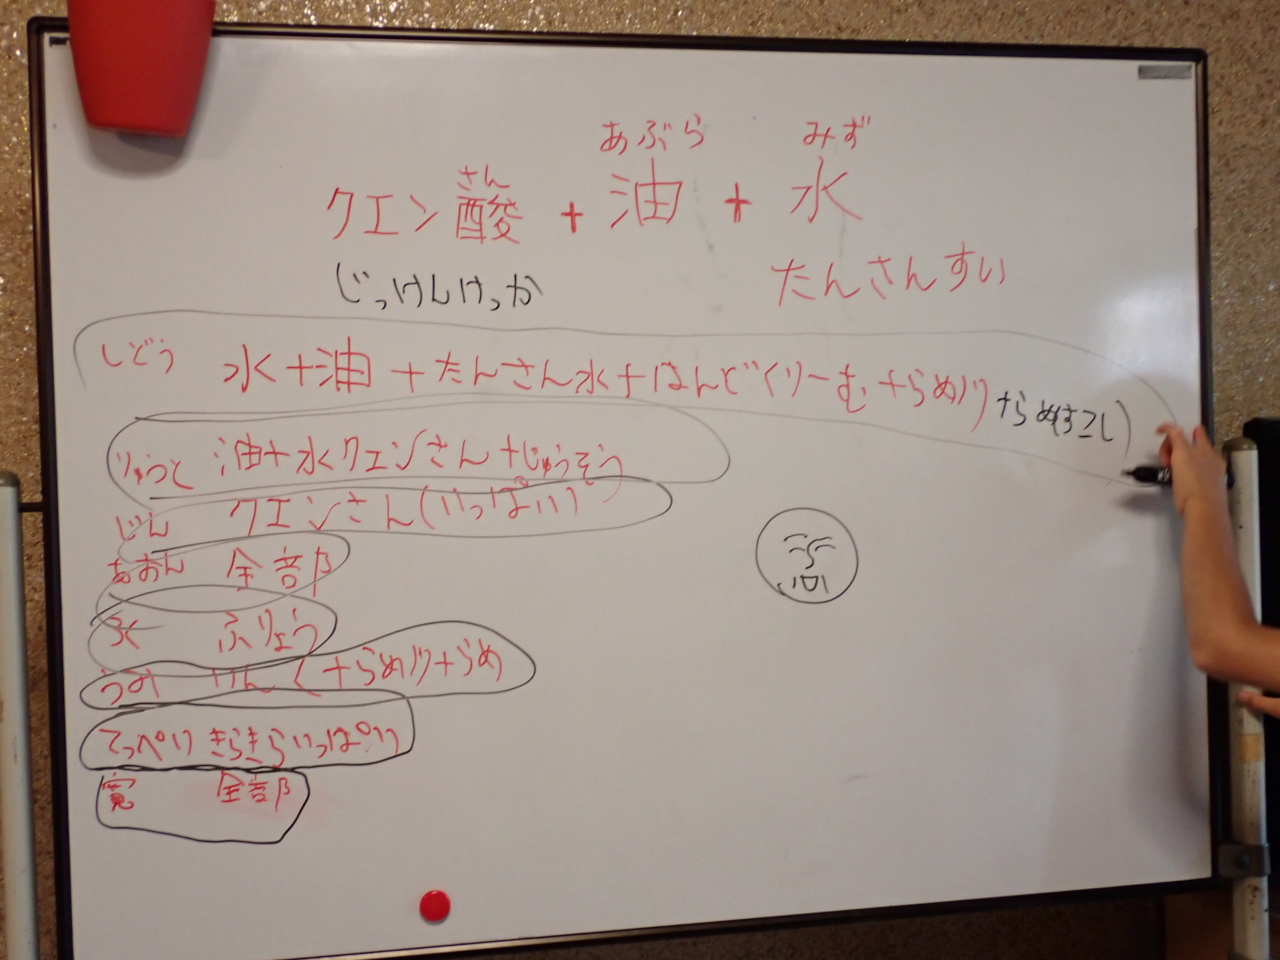 あぶら みず
さん
クエン酸 + 油 + 水
じっけんけっか たんさんすい
しどう 水+油+たんさん水+はんどくりーむ+らめ入り+らめ(すこし)
りゅうと 油+水クエンさん+じゅうそう
じん クエンさん(いっぱい)
あおん 全部
ふりょう
+らめ入り+らめ
てっぺい きらきらいっぱい
寛 全部